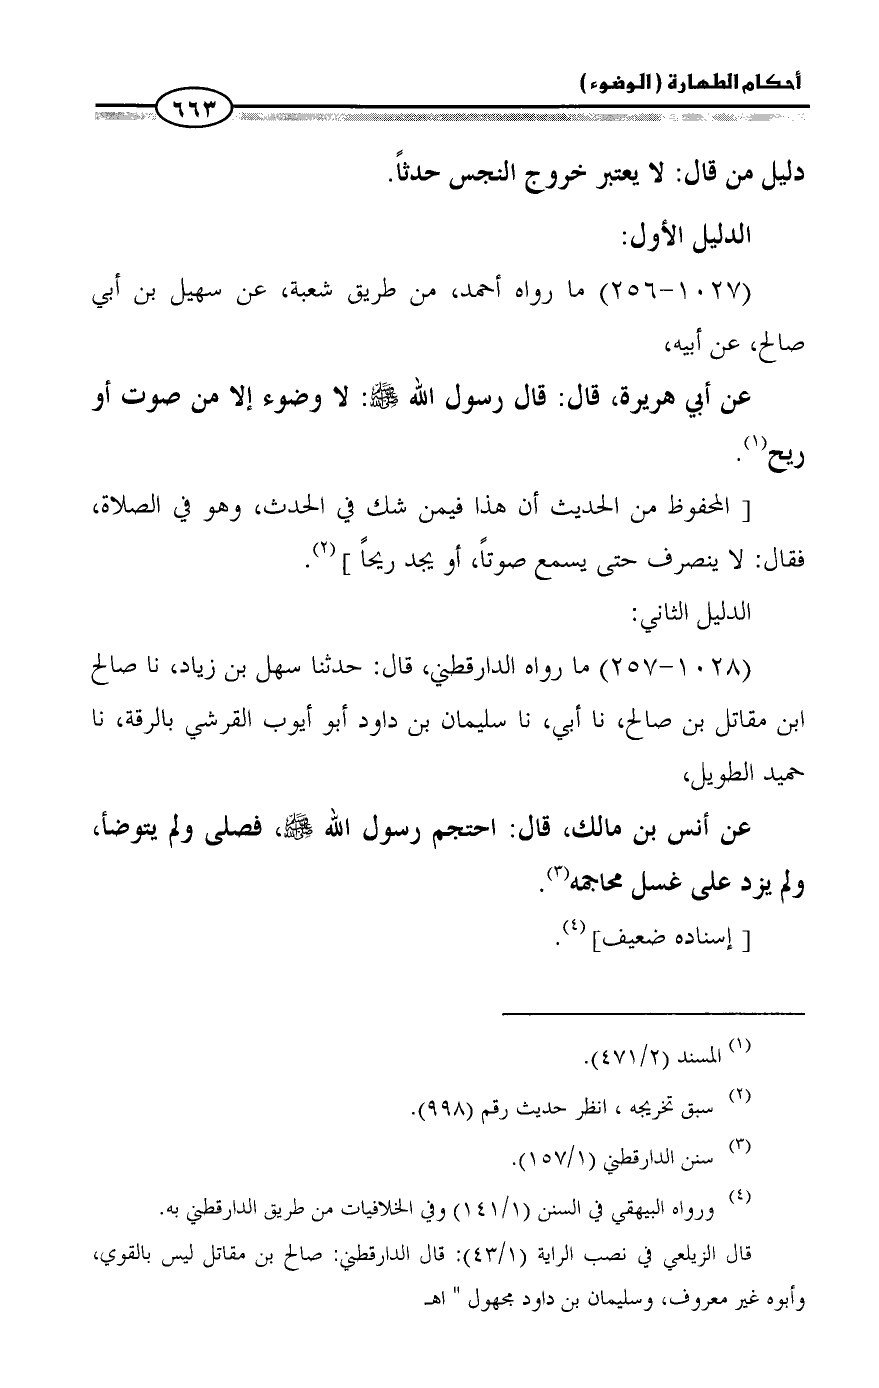 أحكام الطهارة (الوضوء)
٦٦٣
دليل من قال: لا يعتبر خروج النجس حدثاً.
الدليل الأول:
(١٠٢٧-٢٥٦) ما رواه أحمد، من طريق شعبة، عن سهيل بن أبي
صالح، عن أبيه،
عن أبي هريرة، قال: قال رسول الله ﷺ: لا وضوء إلا من صوت أو
ريح(١).
[ المحفوظ من الحديث أن هذا فيمن شك في الحدث، وهو في الصلاة،
فقال: لا ينصرف حتى يسمع صوتاً، أو يجد ريحاً ](٢).
الدليل الثاني:
(١٠٢٨-٢٥٧) ما رواه الدارقطني، قال: حدثنا سهل بن زياد، نا صالح
ابن مقاتل بن صالح، نا أبي، نا سليمان بن داود أبو أيوب القرشي بالرقة، نا
حميد الطويل،
عن أنس بن مالك، قال: احتجم رسول الله ﷺ، فصلى ولم يتوضأ،
ولم يزد على غسل محاجمه(٣).
[ إسناده ضعيف](٤).
(١) المسند (٤٧١/٢).
(٢) سبق تخريجه ، انظر حديث رقم (٩٩٨).
(٣) سنن الدارقطني (١٥٧/١).
(٤) ورواه البيهقي في السنن (١٤١/١) وفي الخلافيات من طريق الدارقطني به.
قال الزيلعي في نصب الراية (٤٣/١): قال الدارقطني: صالح بن مقاتل ليس بالقوي،
وأبوه غير معروف، وسليمان بن داود مجهول " اهـ